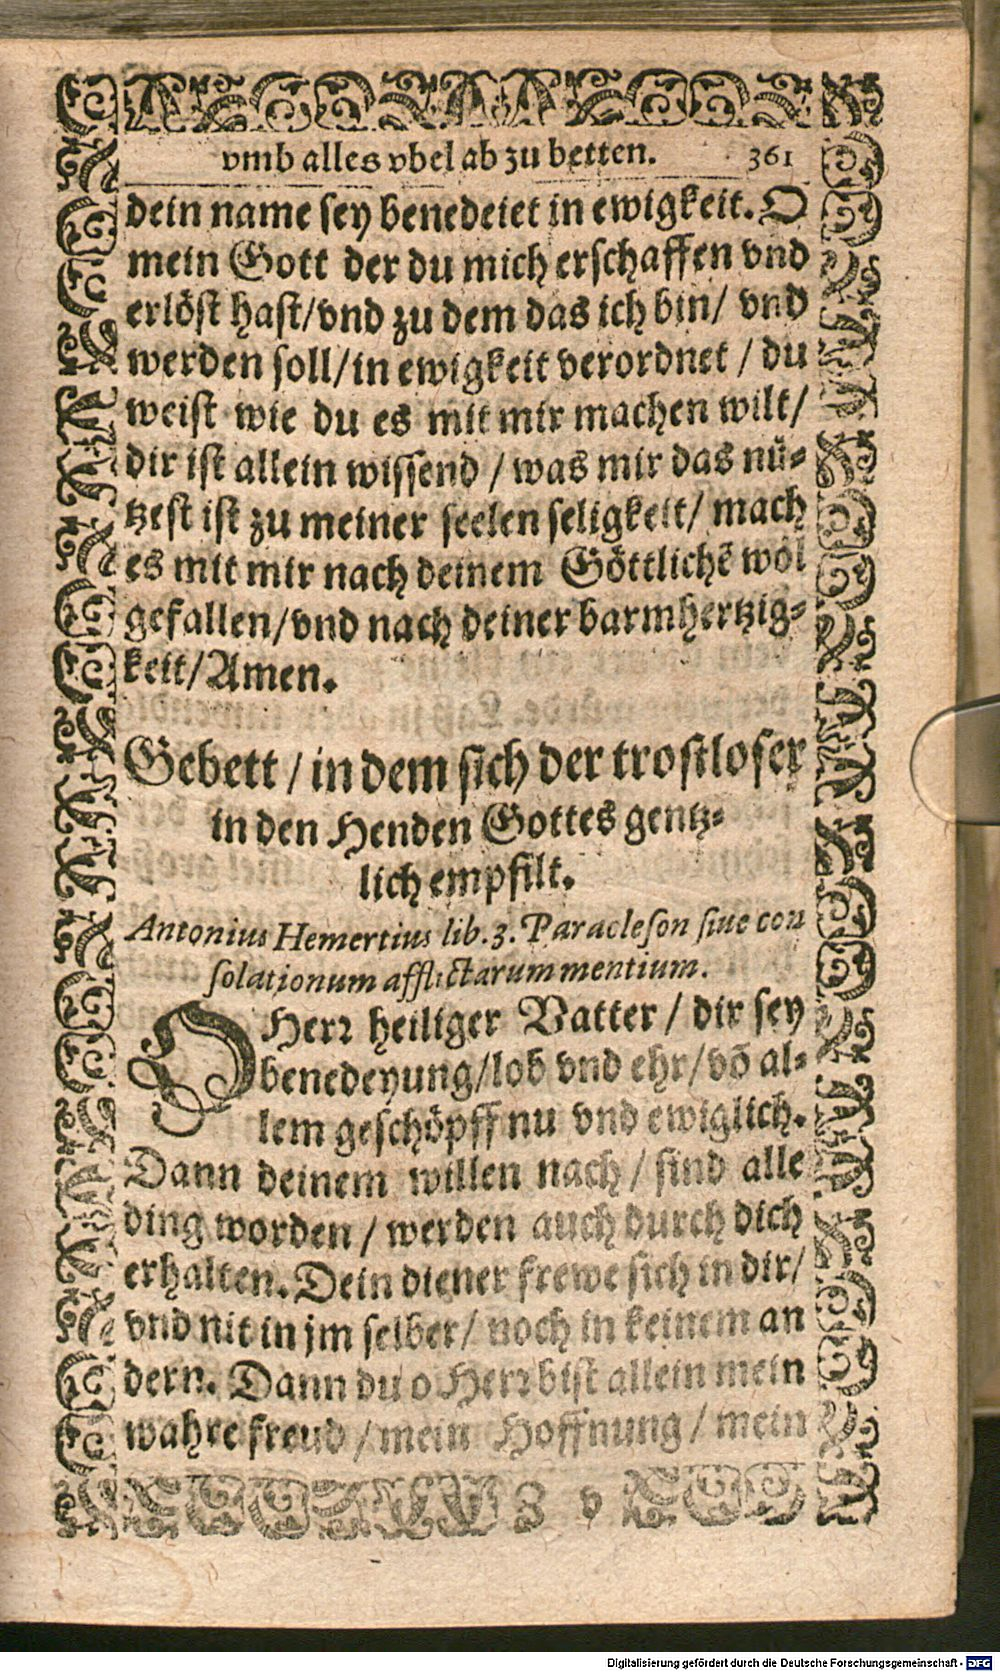 vmb alles vbel ab zu betten. 361
dein name sey benedeiet in ewigkeit. O
mein Gott der du mich erschaffen vnd
erlöst hast/vnd zu dem das ich bin/ vnd
werden soll/in ewigkeit verordnet / du
weist wie du es mit mir machen wilt/
dir ist allein wissend / was mir das nü⸗
tzest ist zu meiner seelen seligkeit/ mach
es mit mir nach deinem Göttlichẽ wol
gefallen/vnd nach deiner barmhertzig⸗
keit/Amen.
Gebett / in dem sich der trostloser
in den Henden Gottes gentz⸗
lich empfilt.
Antonius Hemertius lib. 3. Paracleson siue con
solationum afflictarum mentium.
O Herꝛ heiliger Vatter / dir sey
benedeyung/lob vnd ehr/võ al⸗
lem geschöpff nu vnd ewiglich.
Dann deinem willen nach / sind alle
ding worden / werden auch durch dich
erhalten. Dein diener frewe sich in dir/
vnd nit in jm selber/ noch in keinem an
dern. Dann du o Herꝛ bist allein mein
wahre freud / mein Hoffnung / mein
3 v
Digitalisierung gefördert durch die Deutsche Forschungsgemeinschaft - DFG